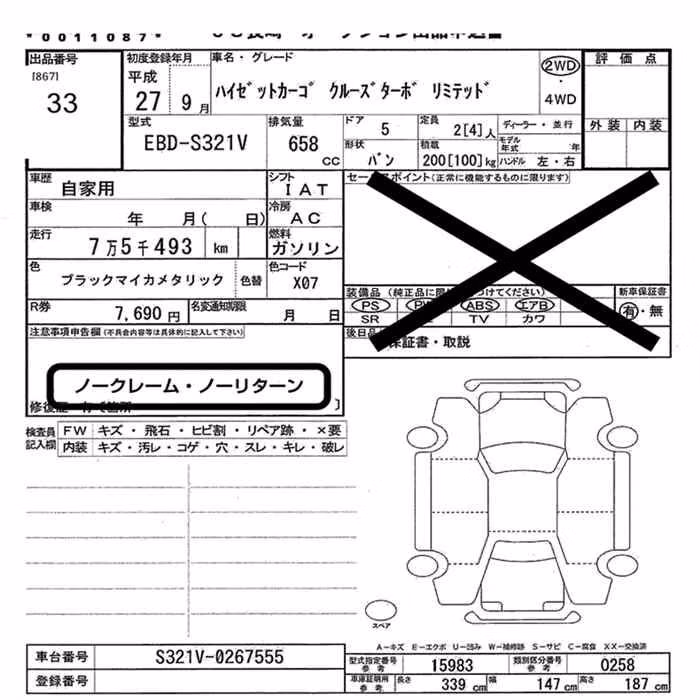 *0011087*
出品番号
[867]
33
初度登録年月
平成
27 9月
車名・グレード
ハイゼットカーゴ クルーズターボ リミテッド
2WD
・
4WD
評価点
外装 内装
型式
EBD-S321V
排気量
658
CC
ドア
5
定員
2[4]人
ディーラー・並行
モデル年式 年
形状
バン
積載
200[100]kg
ハンドル 左・右
車歴
自家用
シフト
IAT
車検
年 月( 日)
冷房
AC
走行
7万5千493 km
燃料
ガソリン
色
ブラックマイカメタリック
色替
色コード
X07
R券
7,690 円
名変通知期限
月 日
セールスポイント(正常に機能するものに限ります)
装備品 (純正品に限
つけてください)
新車保証書
PS
ABS エアB
有・無
SR TV カワ
後日品
保証書・取説
注意事項申告欄(不具合内容等は具体的に記入して下さい)
ノークレーム・ノーリターン
検査員記入欄
FW キズ・飛石・ヒビ割・リペア跡・×要
内装 キズ・汚レ・コゲ・穴・スレ・キレ・破レ
スペア
A-キズ E-エクボ U-凹み W-補修跡 S-サビ C-腐食 XX-交換済
車台番号 S321V-0267555
登録番号
型式指定番号 参考 15983 類別区分番号 参考 0258
車庫証明用 参考 長さ 339 cm 幅 147 cm 高さ 187 cm